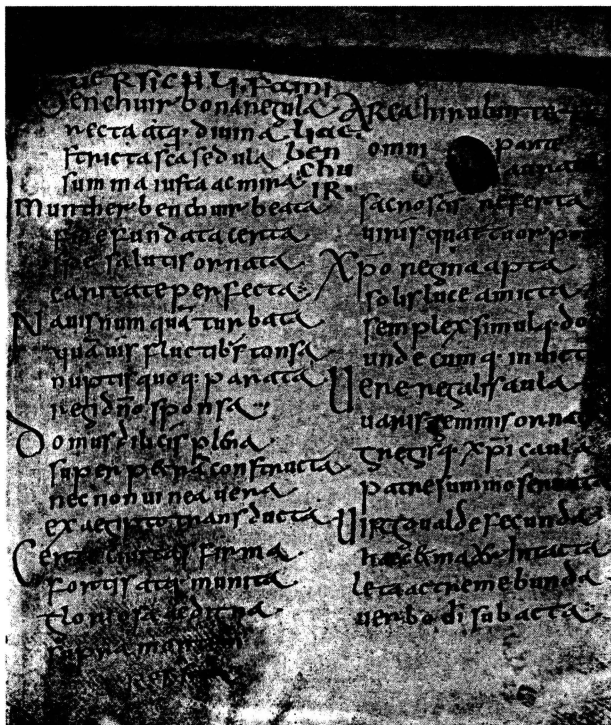 UERSICULI FAMI
Benchuir bona regula
LIAE
recta atq; diuina
BEN
stricta sca sedula
CHU
summa iusta ac mira
IR·
Munther benchuir beata
fide fundata certa
spe salutis ornata
caritate perfecta:
Nauis num quā turbata
quāuis fluctib; tonsa
nuptis quoq; parata
regi dño sponsa:
Domus dilicis plena
super petrā constructa
nec non uinea uera
ex aegipto transducta
Certe ciuitas firma
fortis atq; munita
gloriosa ac digna
supra
Arca hirubin tec
omni parte
aurata
sacrosčis referta
uiris quattuor por
Xpo regina apta
solis luce amicta
semplex simulq; do
undecumq; inuict
Uere regalis aula
uaris gemmis orna
gregisq; xpi caula
patre summo seruata
Uirgo ualde fecunda
haec & mater intacta
leta ac tremebunda
uerbo dī subacta: